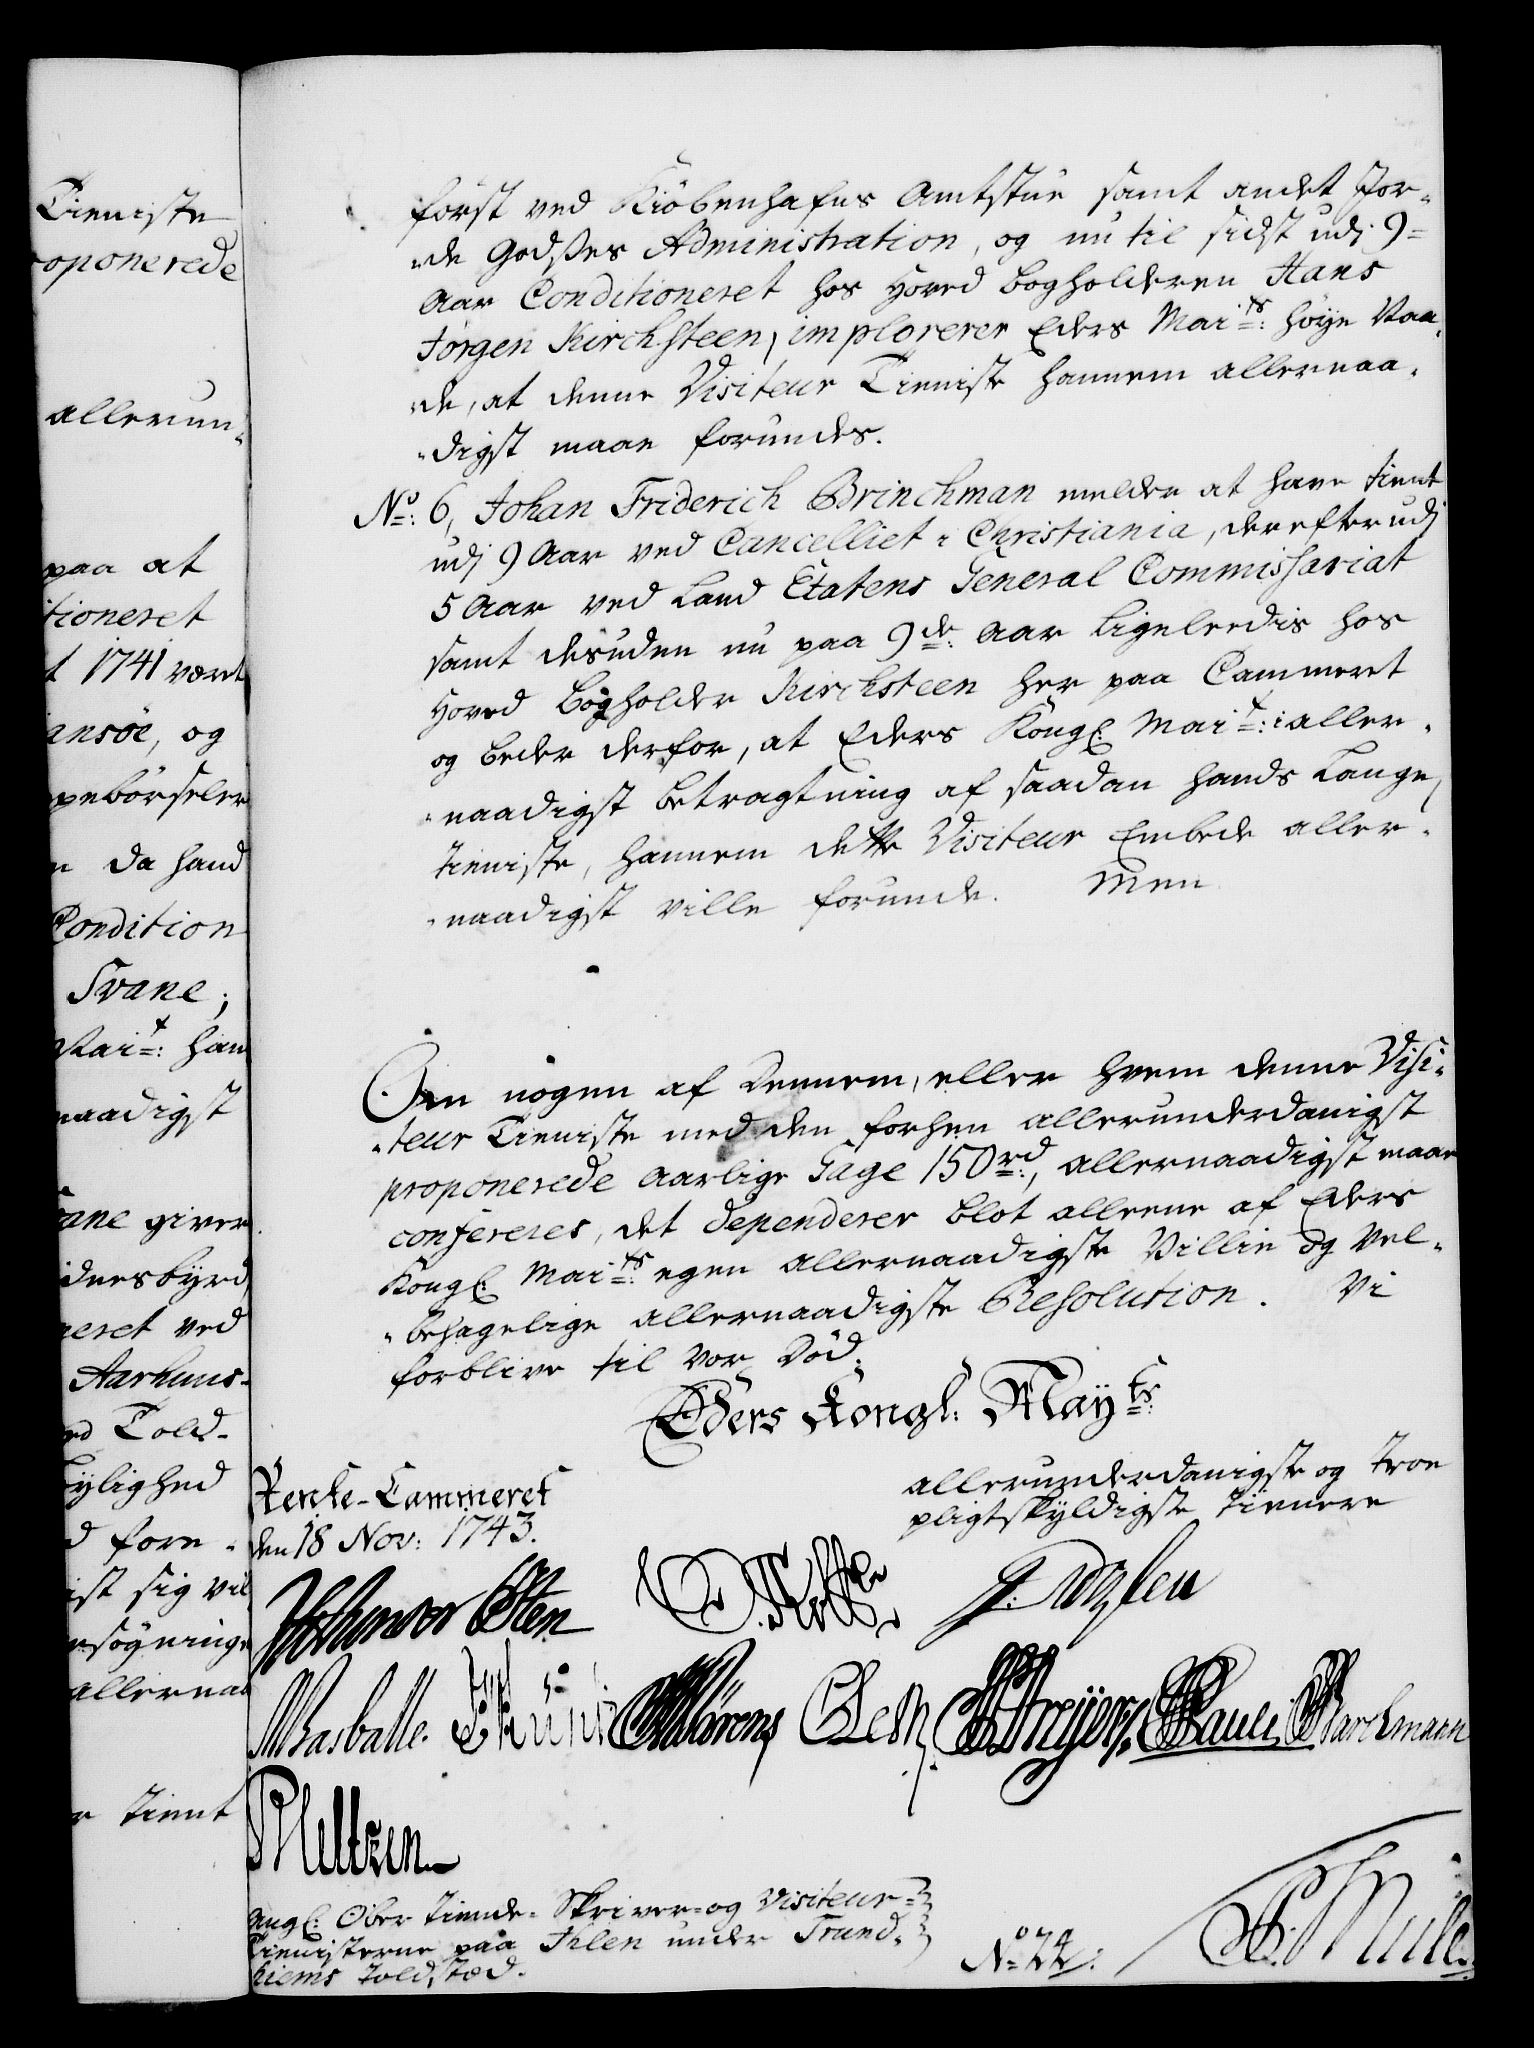 Tieniste
oponerede
allerun-
paa at
tioneret
1741 været
ansøe, og
da hand
Condition
Svane;
Mait: ham
naadigst
ane giver
idnesbyrd
neret ved
Aarhuus-
Told-
fore-
ist sig vil
allernaa
tient
først ved Kiöbenhafns Amtstue samt andet Jor-
de Godses Administration, og nu til sidst udj 9-
Aar Conditioneret hos Hoved Bogholderen Hans
Jørgen Kirchsteen, implorerer Eders Maits: høye Naa-
de, at denne Visiteur Tieniste hannem allernaa-
digst maae forundes.
No: 6, Johan Friderich Brinchman melder at have tient
udj 9 Aar ved Cancelliet i Christiania, derefter udj
5 Aar ved Land Etatens General Commissariat
samt desuden nu paa 9de: Aar ligeledis hos
Hoved Bogholder Kirchsteen her paa Cammeret
og beder derfor, at Eders Kongl: Mait: i aller-
naadigst betragtning af saadan hands lange
tieniste, hannem dette Visiteur Embede aller-
naadigst ville forunde. Men
Om nogen af dennem, eller hvem denne Visi-
teur Tieniste med den forhen allerunderdanigst
proponerede aarlige Gage 150rd:, allernaadigst maae
confereres, det dependerer blot alleene af Eders
Kongl: Maits: egen allernaadigste Villie og Vel-
behagelige allernaadigste Resolution. Vi
forblive til vor Död.
Eders Kongl: Mayts:
Rente-Cammeret
den 18 Nov: 1743.
allerunderdanigste og troe
pligtskyldigste tienere
Basballe.
Pauli
Barchmann
Meltzen
ang: Ober Tiende-Skriver- og Visiteur-
Tienisterne paa Ihlen under Trund-
hiems toldsted.
No 22: